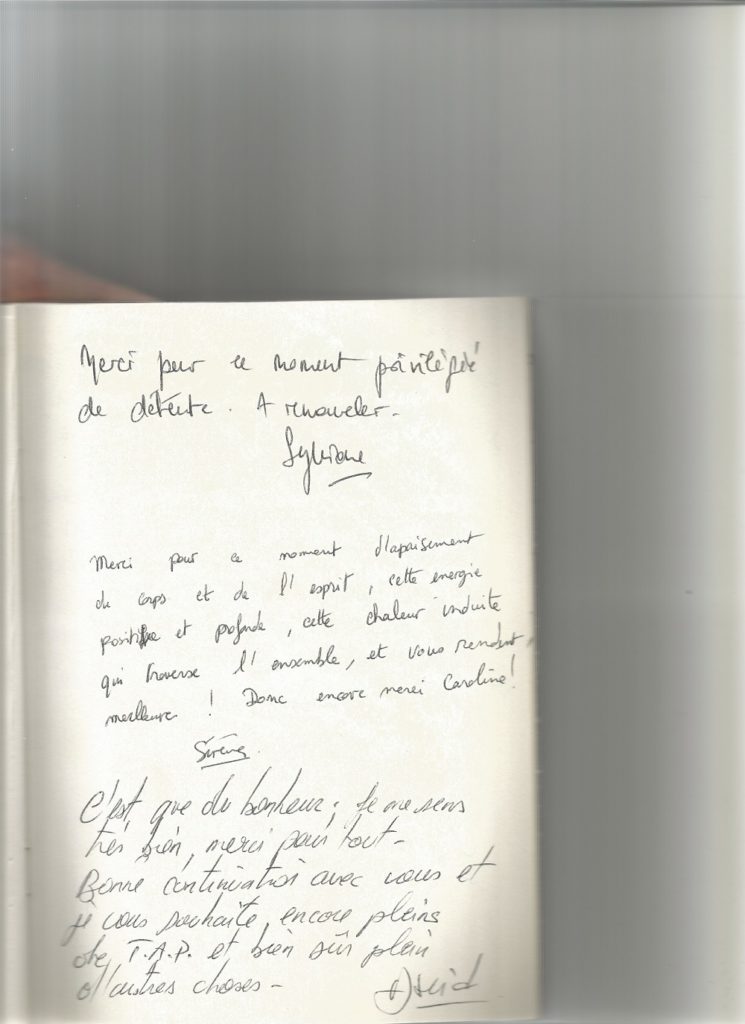 Merci pour ce moment privilégié
de détente. A renouveler.
Sylviane
Merci pour ce moment d'apaisement
du corps et de l'esprit, cette energie
positive et profonde, cette chaleur induite
qui traverse l'ensemble, et vous rendent
meilleure ! Donc encore merci Caroline !
C'est que du bonheur; je me sens
très bien, merci pour tout -
Bonne continuation avec vous et
je vous souhaite encore pleins
de T.A.P. et bien sûr plein
d'autres choses -